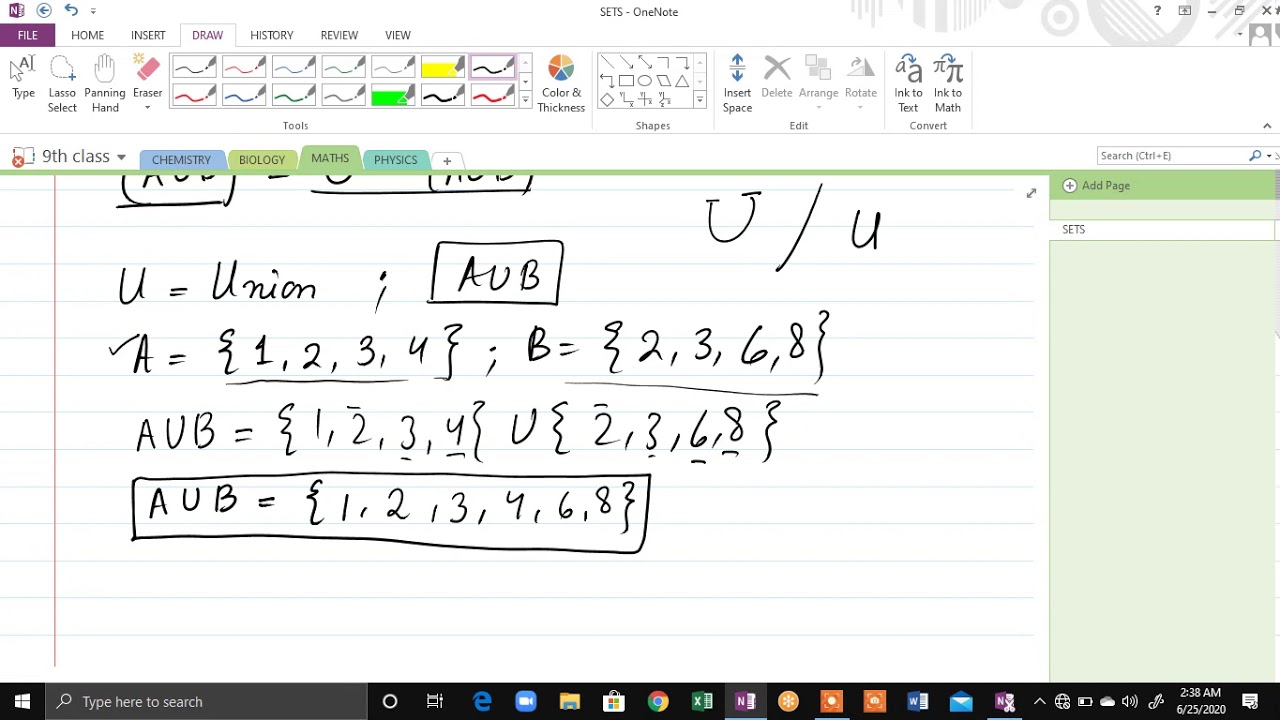 SETS - OneNote
FILE HOME INSERT DRAW HISTORY REVIEW VIEW
Type Lasso Select Panning Hand Eraser Color & Thickness Insert Space Delete Arrange Rotate Ink to Text Ink to Math
Tools Shapes Edit Convert
9th class CHEMISTRY BIOLOGY MATHS PHYSICS + Search (Ctrl+E)
Add Page
SETS
(AUB) = U - (AUB)
U / U
U = Union ; AUB
A = {1, 2, 3, 4} ; B = {2, 3, 6, 8}
AUB = {1, 2, 3, 4} U {2, 3, 6, 8}
AUB = {1, 2, 3, 4, 6, 8}
Type here to search
2:38 AM
6/25/2020